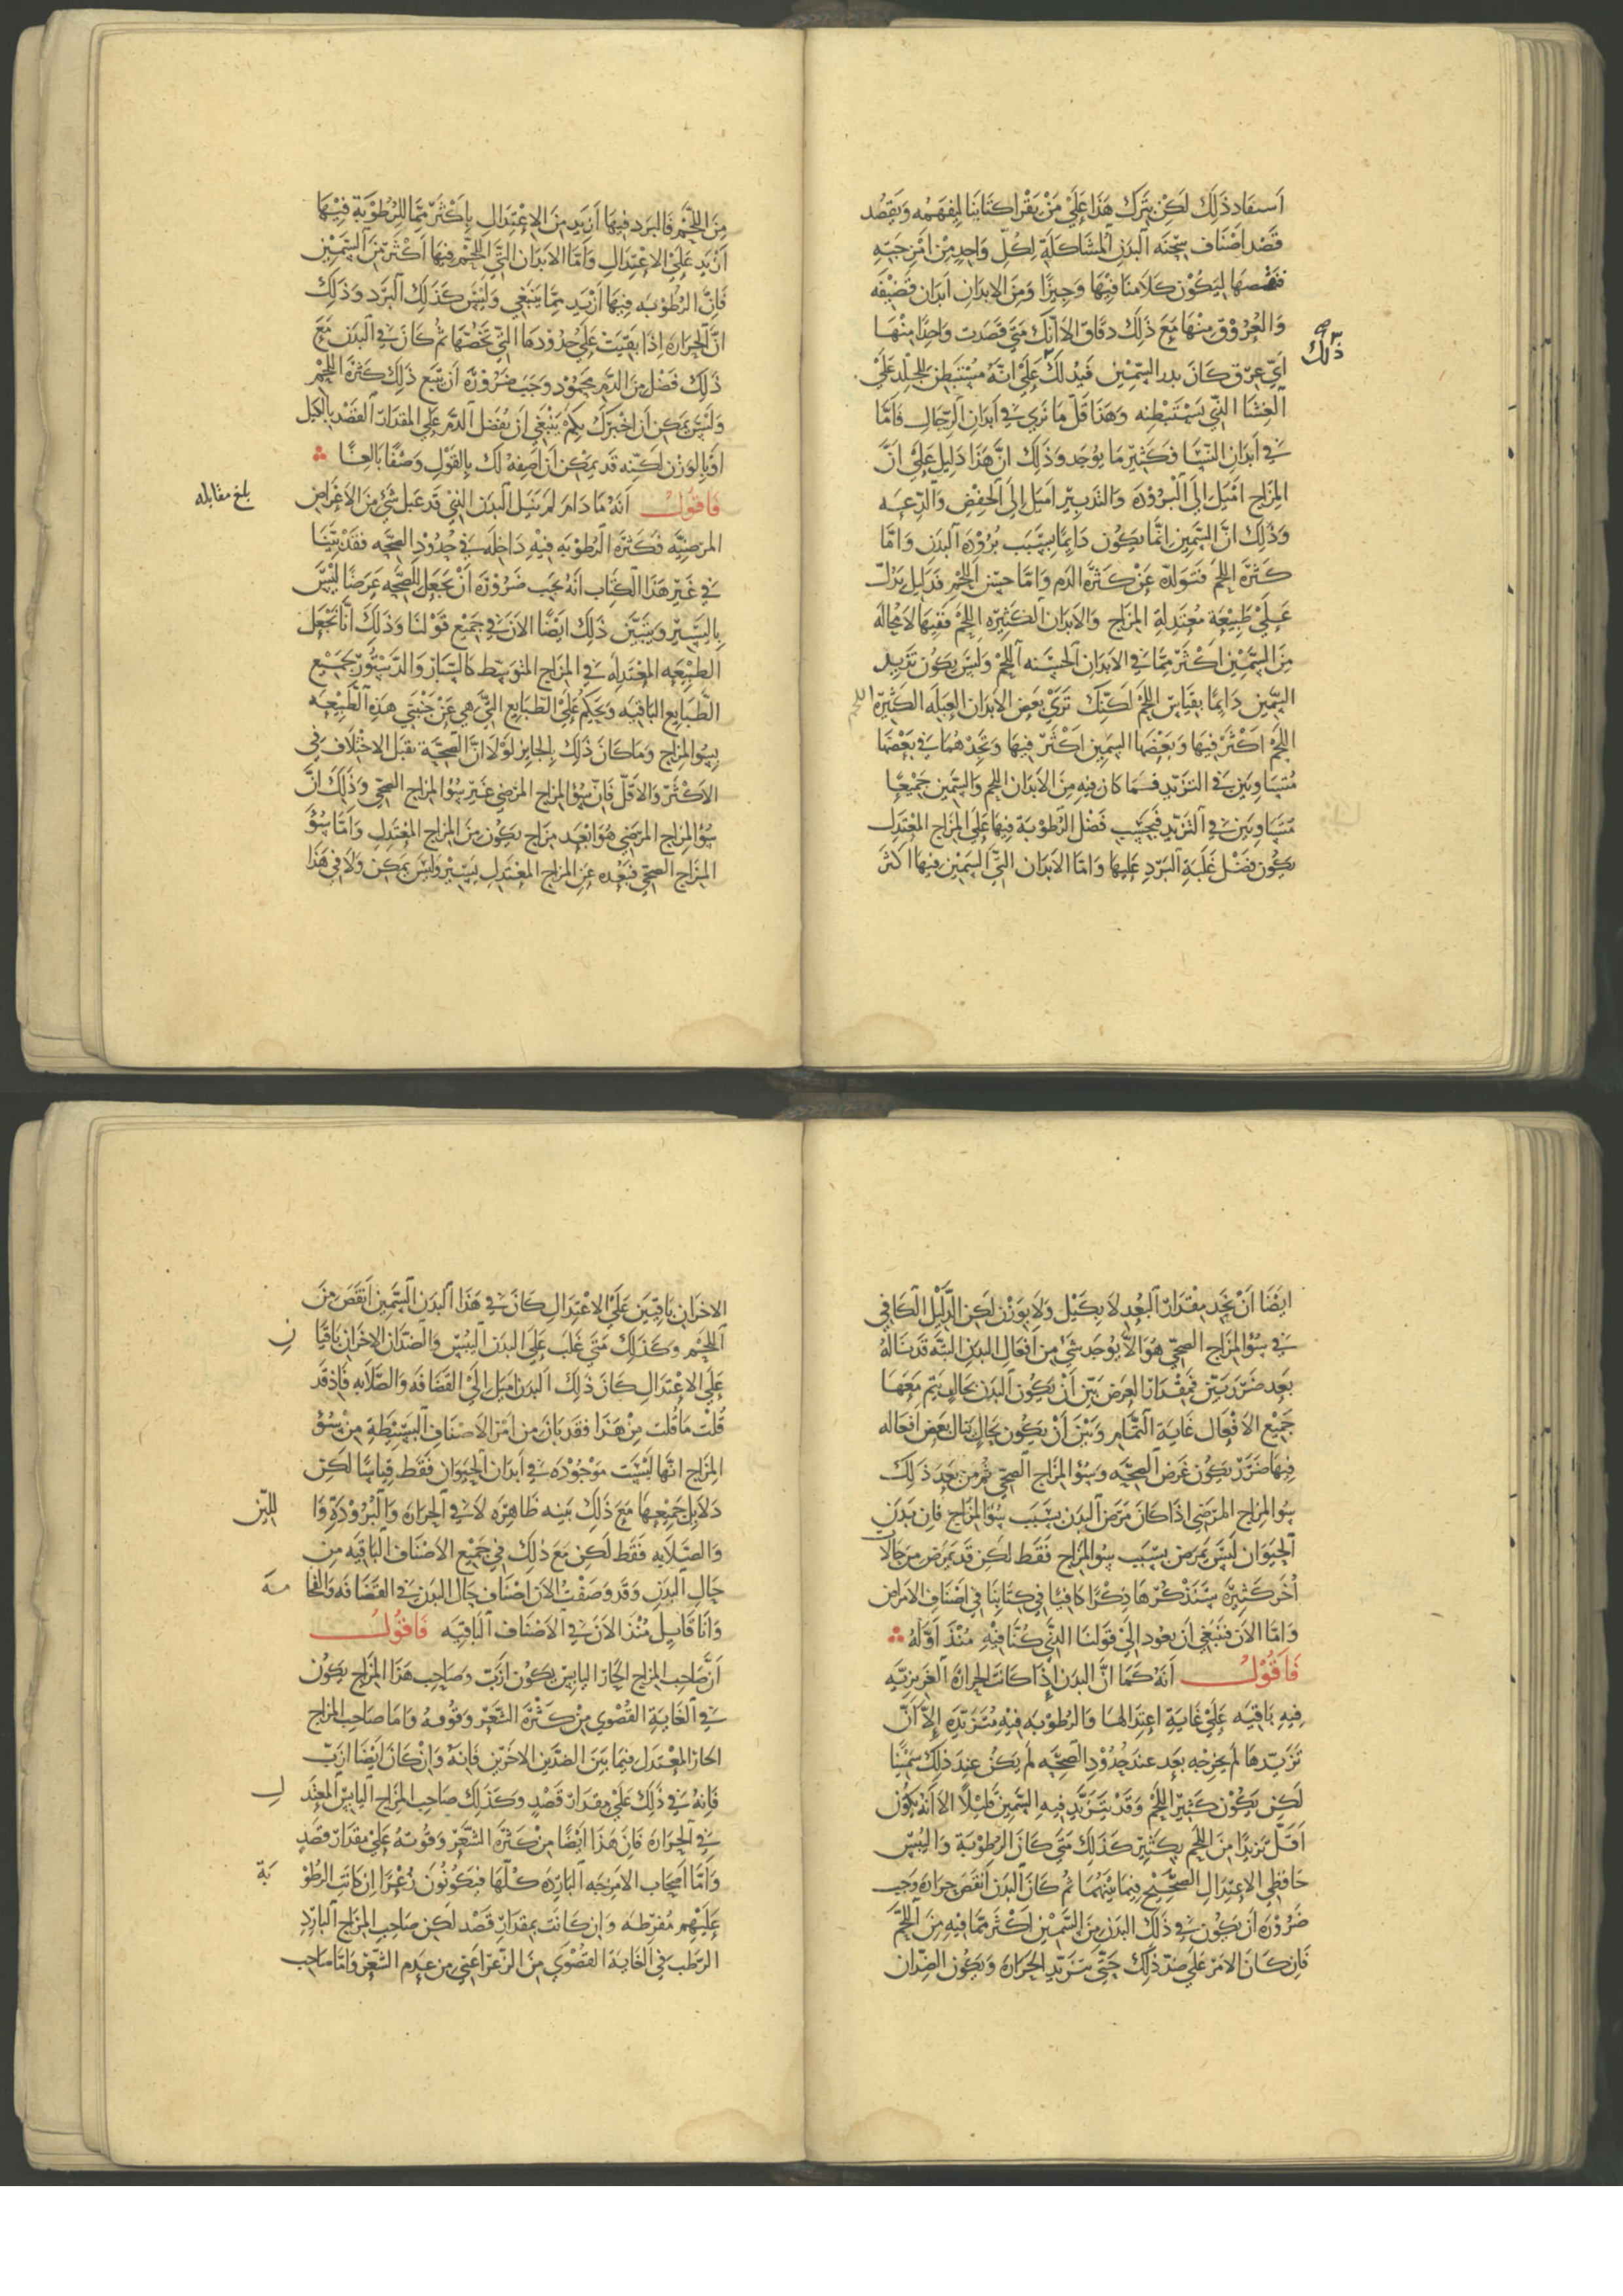 أستفاد ذلك لكن يترك هذا علي من يقرا كتابنا ليفهمه ويقصد
قصد اصناف سحنه البدن المشاكلة لكل واحد من امزجته
فنقصها ليكون كلامنا فيها وجيزا ومن الابدان ابدان قضيفه
والعروق منها مع ذلك دقاق الا انك متي قصدت واحدا منها
ذلك
أي عرق كان بدر السمين فيدلك علي انه مستبطن للجلد علي
الغشا الذي يستبطنه وهذا قل ما تري في ابدان الرجال فاما
في أبدان النسا فكثير ما يوجد وذلك ان هذا دليل علي ان
المزاج اميل الى البرودة والتدبير اميل الى الخفض والدعه
وذلك ان السمين انما يكون دايما بسبب برودة البدن واما
كثرة اللحم فتولده عن كثرة الدم واما حسن اللحم فدليل يدل
علي طبيعة معتدلة المزاج والابدان الكثيره اللحم ففيها لا محاله
من السمين اكثر مما في الابدان الحسنه اللحم وليس يكون تزيد
السمين دايما بقياس اللحم لكنك تري بعض الابدان العبله الكثيره
اللحم
اللحم اكثر فيها وبعضها السمين اكثر فيها وتجدهما في بعضها
متساويين في التزيد فما كان فيه من الابدان اللحم والسمين جميعا
متساويين في التزيد فبحسب فضل الرطوبة فيها علي المزاج المعتدل
يكون فضل غلبة البرد عليها واما الابدان التي السمين فيها اكثر
من اللحم فالبرد فيها أزيد من الاعتدال باكثر مما للرطوبة فيها
أزيد علي الاعتدال واما الابدان التي اللحم فيها اكثر من السمين
فان الرطوبه فيها أزيد مما ينبغي وليس كذلك البرد وذلك
ان الحراره اذا بقيت علي حدودها التي تخصها ثم كان في البدن مع
ذلك فضل من الدم محمود وجب ضرورة ان يتبع ذلك كثرة اللحم
وليس يمكن ان اخبرك بكم ينبغي ان يفضل الدم علي المقدار القصد بالكيل
او بالوزن لكنه قد يمكن ان اصفه لك بالقول وصفا بالغا
فاقول انه ما دام لم ينل البدن الذي قد عبل شي من الاعراض
بلغ مقابله
المرضيه فكثرة الرطوبه فيه داخله في حدود الصحه فقد بينا
في غير هذا الكتاب انه يجب ضرورة ان نجعل للصحه عرضا ليس
باليسير ويتبين ذلك ايضا الان في جميع قولنا وذلك انا نجعل
الطبيعه المعتدله في المزاج المتوسط كالسبار والدستور لجميع
الطبايع الباقيه ونحكم علي الطبايع التي هي عن جنبتي هذه الطبيعه
بسو المزاج وما كان ذلك بالجايز لولا ان الصحة تقبل الاختلاف في
الاكثر والاقل فان سو المزاج المرضي غير سو المزاج الصحي وذلك ان
سو المزاج المرضي هو ابعد مزاج يكون من المزاج المعتدل واما سو
المزاج الصحي فبعده عن المزاج المعتدل يسير وليس يمكن ولا في هذا
ايضا أن نجد مقدار البعد لا بكيل ولا بوزن لكن الدليل الكافي
في سو المزاج الصحي هو الا يوجد شي من افعال البدن البتة قد ناله
بعد ضرر بين فمقدار العرض بين أن يكون البدن بحال يتم معها
جميع الافعال غاية التمام وبين أن يكون بحال ينال بعض افعاله
فيها ضرر يكون عرض الصحه وسو المزاج الصحي ثم من بعد ذلك
سو المزاج المرضي اذا كان مرض البدن بسبب سو المزاج فان بدن
الحيوان ليس يمرض بسبب سو المزاج فقط لكن قد يمرض من حالات
أخر كثيره سنذكرها ذكرا كافيا في كتابنا في اصناف الامراض
واما الان فينبغي ان نعود الي قولنا الذي كنا فيه منذ اوله
فاقول انه كما ان البدن اذا كانت الحرارة الغريزيه
فيه باقيه علي غاية اعتدالها والرطوبه فيه متزيده الا ان
تزيدها لم يخرجه بعد عند حدود الصحه لم يكن عند ذلك سمينا
لكن يكون كثير اللحم وقد يتزيد فيه السمين قليلا الا انه يكون
اقل تزيدا من اللحم بكثير كذلك متي كان الرطوبة واليبس
حافظي الاعتدال الصحيح فيما بينهما ثم كان البدن انقص حراره وجب
ضرورة ان يكون في ذلك البدن من السمين اكثر مما فيه من اللحم
فان كان الامر علي ضد ذلك حتي تتزيد الحراره ويكون الضدان
الاخران باقيين علي الاعتدال كان في هذا البدن السمين انقص من
اللحم وكذلك متي غلب علي البدن اليبس والضدان الاخران باقيان
علي الاعتدال كان ذلك البدن اميل الي القضافه والصلابه فاذ قد
قلت ما قلت من هذا فقد بان من امر الاصناف البسيطة من سو
المزاج انها ليست موجوده في ابدان الحيوان فقط قياسا لكن
دلايل جميعها مع ذلك بينه ظاهره لا في الحراره والبرودة واللين
والصلابه فقط لكن مع ذلك في جميع الاصناف الباقيه من
حال البدن وقد وصفت الان اصناف حال البدن في القضافه والفخامه
وانا قايل منذ الان في الاصناف الباقيه فاقول
ان صاحب المزاج الحار اليابس يكون ازب وصاحب هذا المزاج يكون
في الغاية القصوي من كثرة الشعر وقوته واما صاحب المزاج
الحار المعتدل فيما بين الضدين الاخرين فانه وان كان ايضا ازب
فانه في ذلك علي مقدار قصد وكذلك صاحب المزاج اليابس المعتدل
في الحراره فان هذا ايضا من كثرة الشعر وقوته علي مقدار قصد
واما اصحاب الامزجه البارده كلها فيكونون زعرا ان كانت الرطوبة
عليهم مفرطه وان كانت بمقدار قصد لكن صاحب المزاج البارد
الرطب في الغاية القصوي من الزعر اعني من عدم الشعر واما صاحب